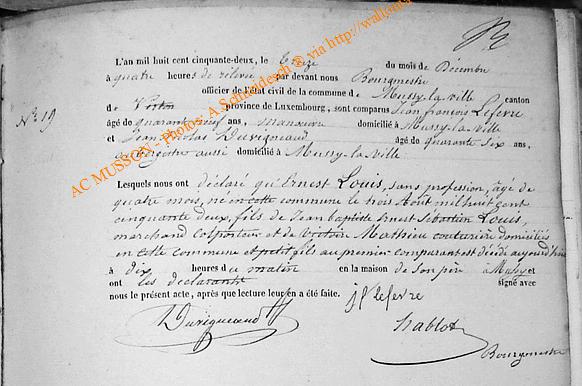 L'an mil huit cent cinquante-deux, le treize du mois de Décembre
à quatre heures de relévée par devant nous Bourgmestre
officier de l'état civil de la commune de Mussy-la-ville canton
de Virton province de Luxembourg, sont comparus Jean françois Lefevre
N° 19
âgé de quarante neuf ans, manœuvre domicilié à Mussy-la-ville
et Jean Nicolas Durigneaud âgé de quarante six ans,
aubergiste aussi domicilié à Mussy-la-ville
Lesquels nous ont déclaré qu'Ernest Louis, sans profession, âgé de
quatre mois, né en cette commune le trois Août mil huit cent
cinquante deux, fils de Jean baptiste Ernest Sébastien Louis,
marchand colporteur et de Victoire Mathieu couturière domiciliés
en cette commune et petit fils au premier comparant est décédé aujourd'hui
à dix heures du matin en la maison de son père à Mussy et
ont les déclarants signé avec
nous le présent acte, après que lecture leur en a été faite. jf lefevre
Durigneaud
hablot
Bourgmestre
AC MUSSON - Photos: A.Schneidesch @ via http://walkun